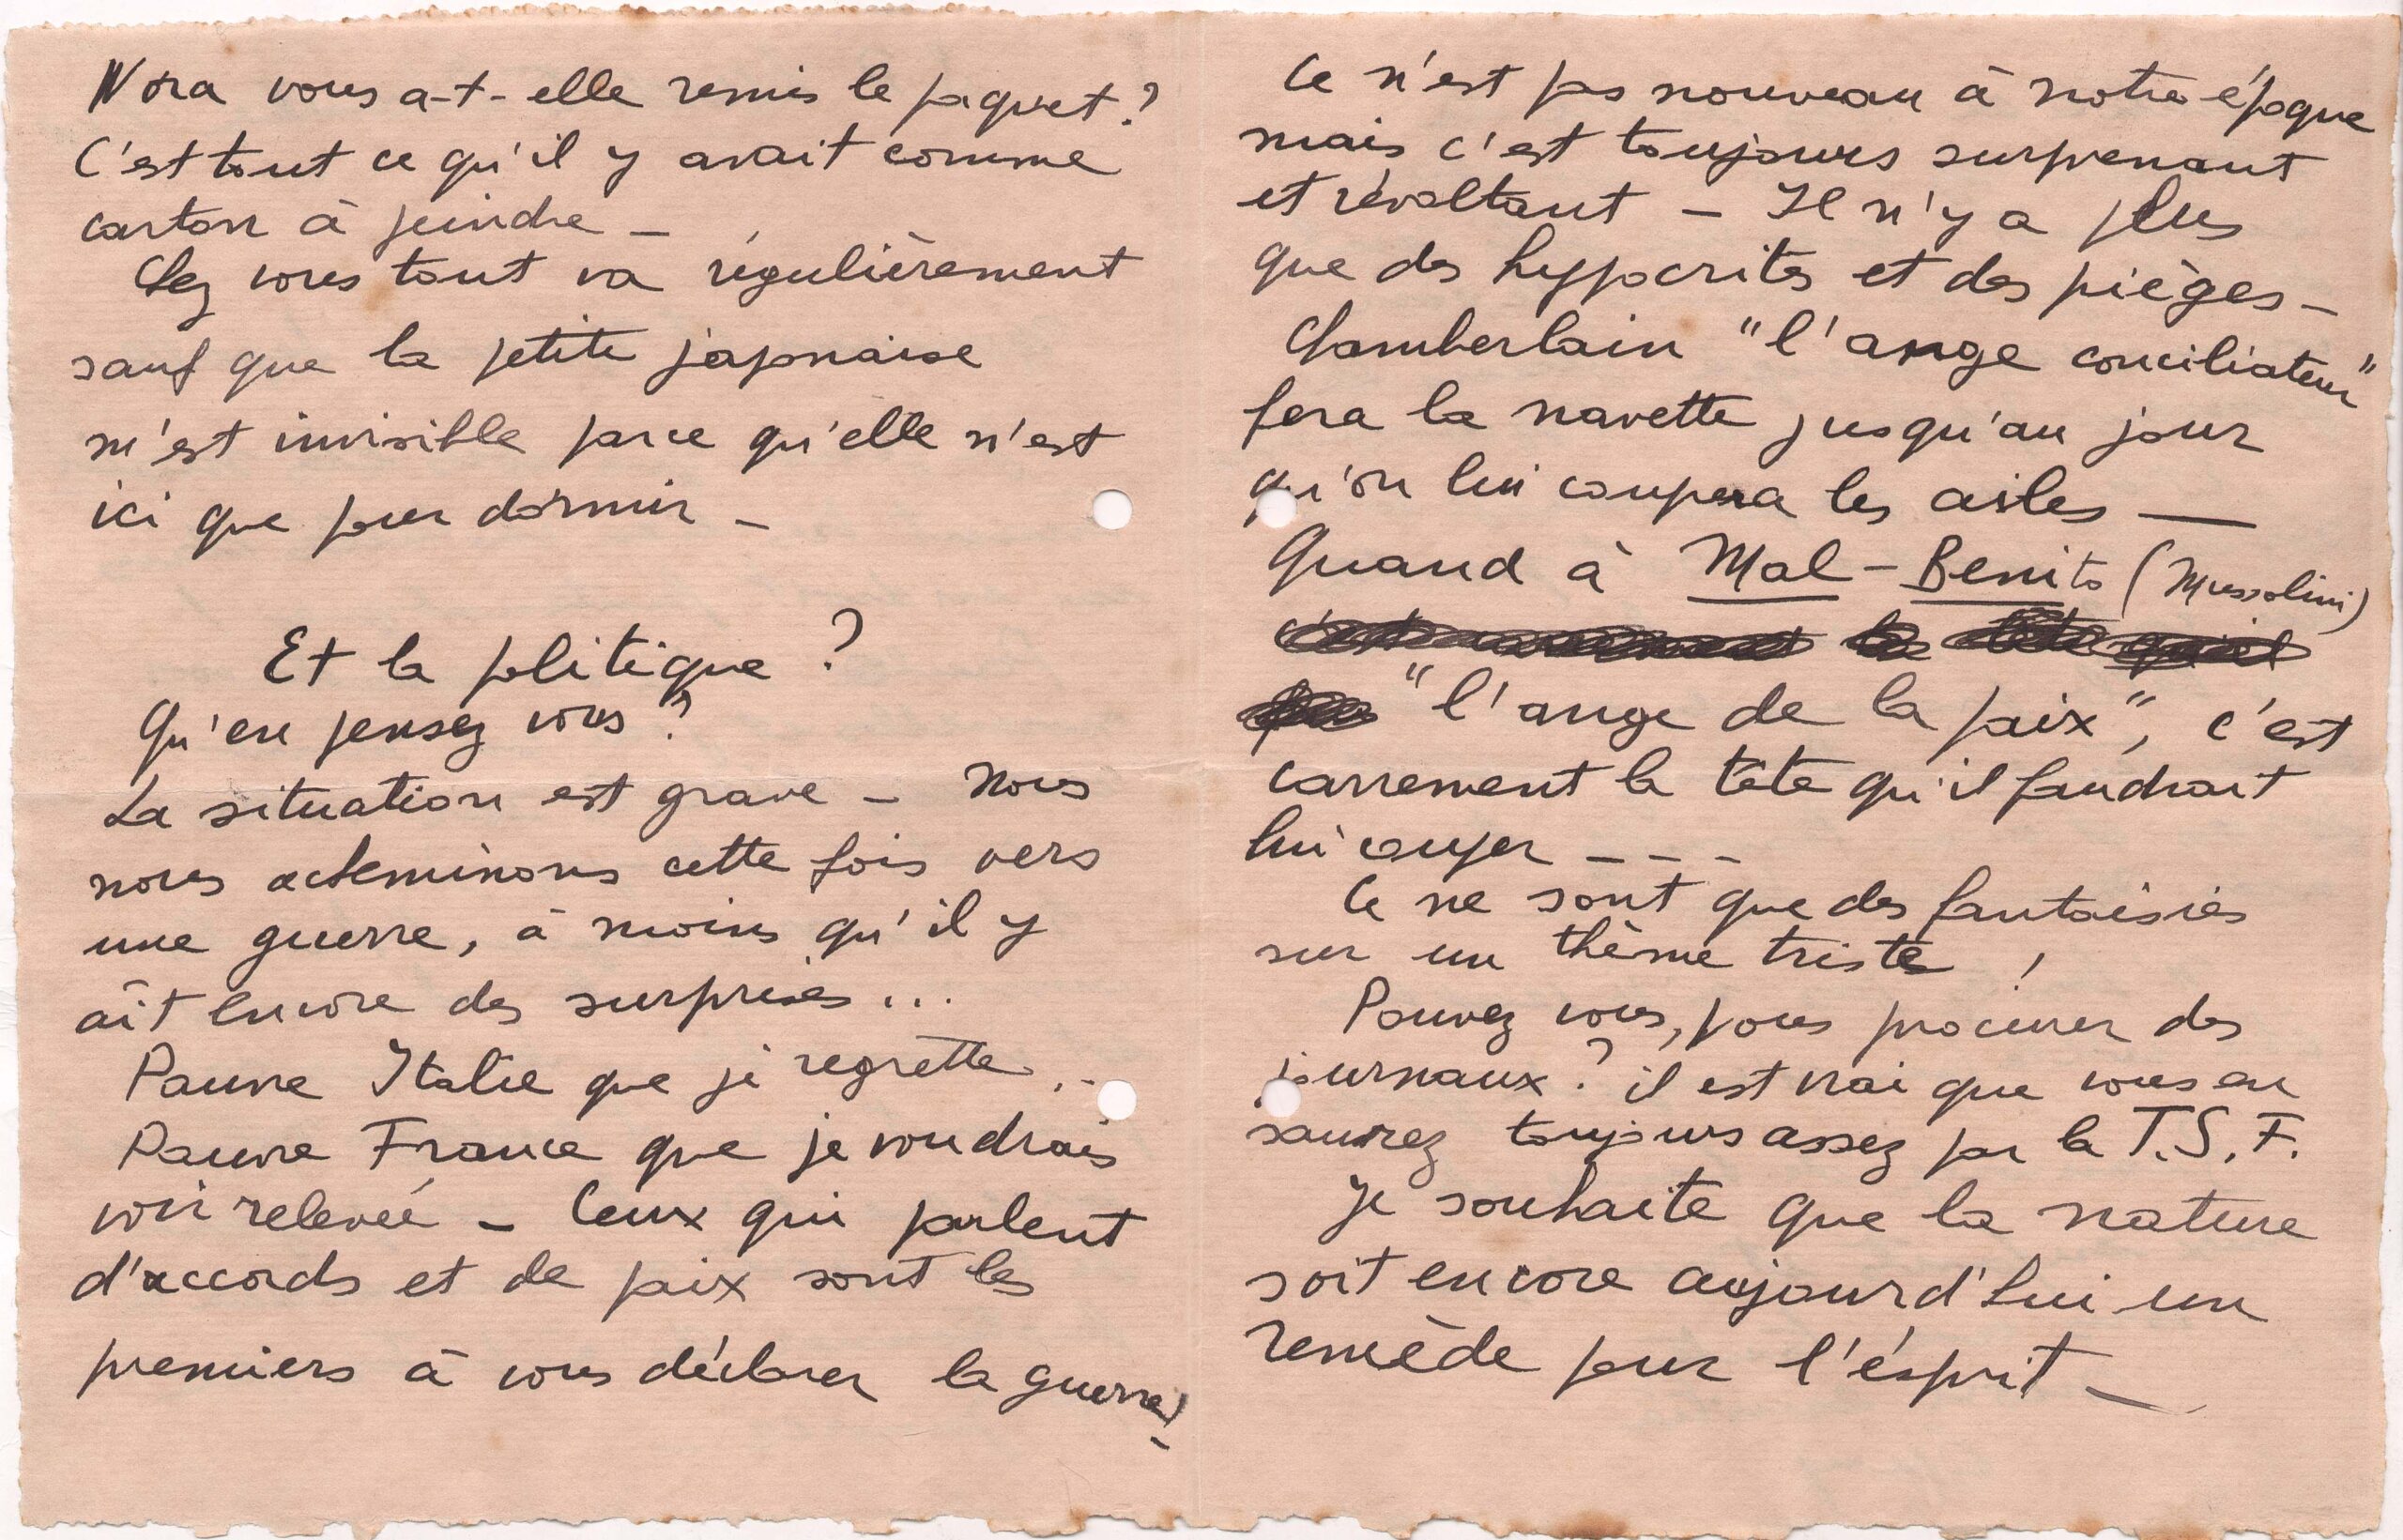 Nora vous a-t-elle remis le paquet?
C'est tout ce qu'il y avait comme
carton à peindre –
Chez vous tout va régulièrement
sauf que la petite japonaise
m'est invisible parce qu'elle n'est
ici que pour dormir –
Et la politique ?
Qu'en pensez vous ?
La situation est grave – Nous
nous acheminons cette fois vers
une guerre, à moins qu'il y
ait encore des surprises...
Pauvre Italie que je regrette..
Pauvre France que je voudrais
voir relevée – Ceux qui parlent
d'accords et de paix sont les
premiers à vous déclarer la guerre!
Ce n'est pas nouveau à notre époque
mais c'est toujours surprenant
et révoltant – Il n'y a plus
que des hypocrites et des pièges –
Chamberlain "l'ange conciliateur"
fera la navette jusqu'au jour
qu'on lui coupera les ailes —
Quand à Mal-Benito (Mussolini)
"l'ange de la paix", c'est
carrement la tête qu'il faudrait
lui couper – – –
Ce ne sont que des fantaisies
sur un thème triste !
Pouvez vous, vous procurer des
journaux? il est vrai que vous en
saurez toujours assez par la T.S.F.
Je souhaite que la nature
soit encore aujourd'hui un
remède pour l'ésprit –